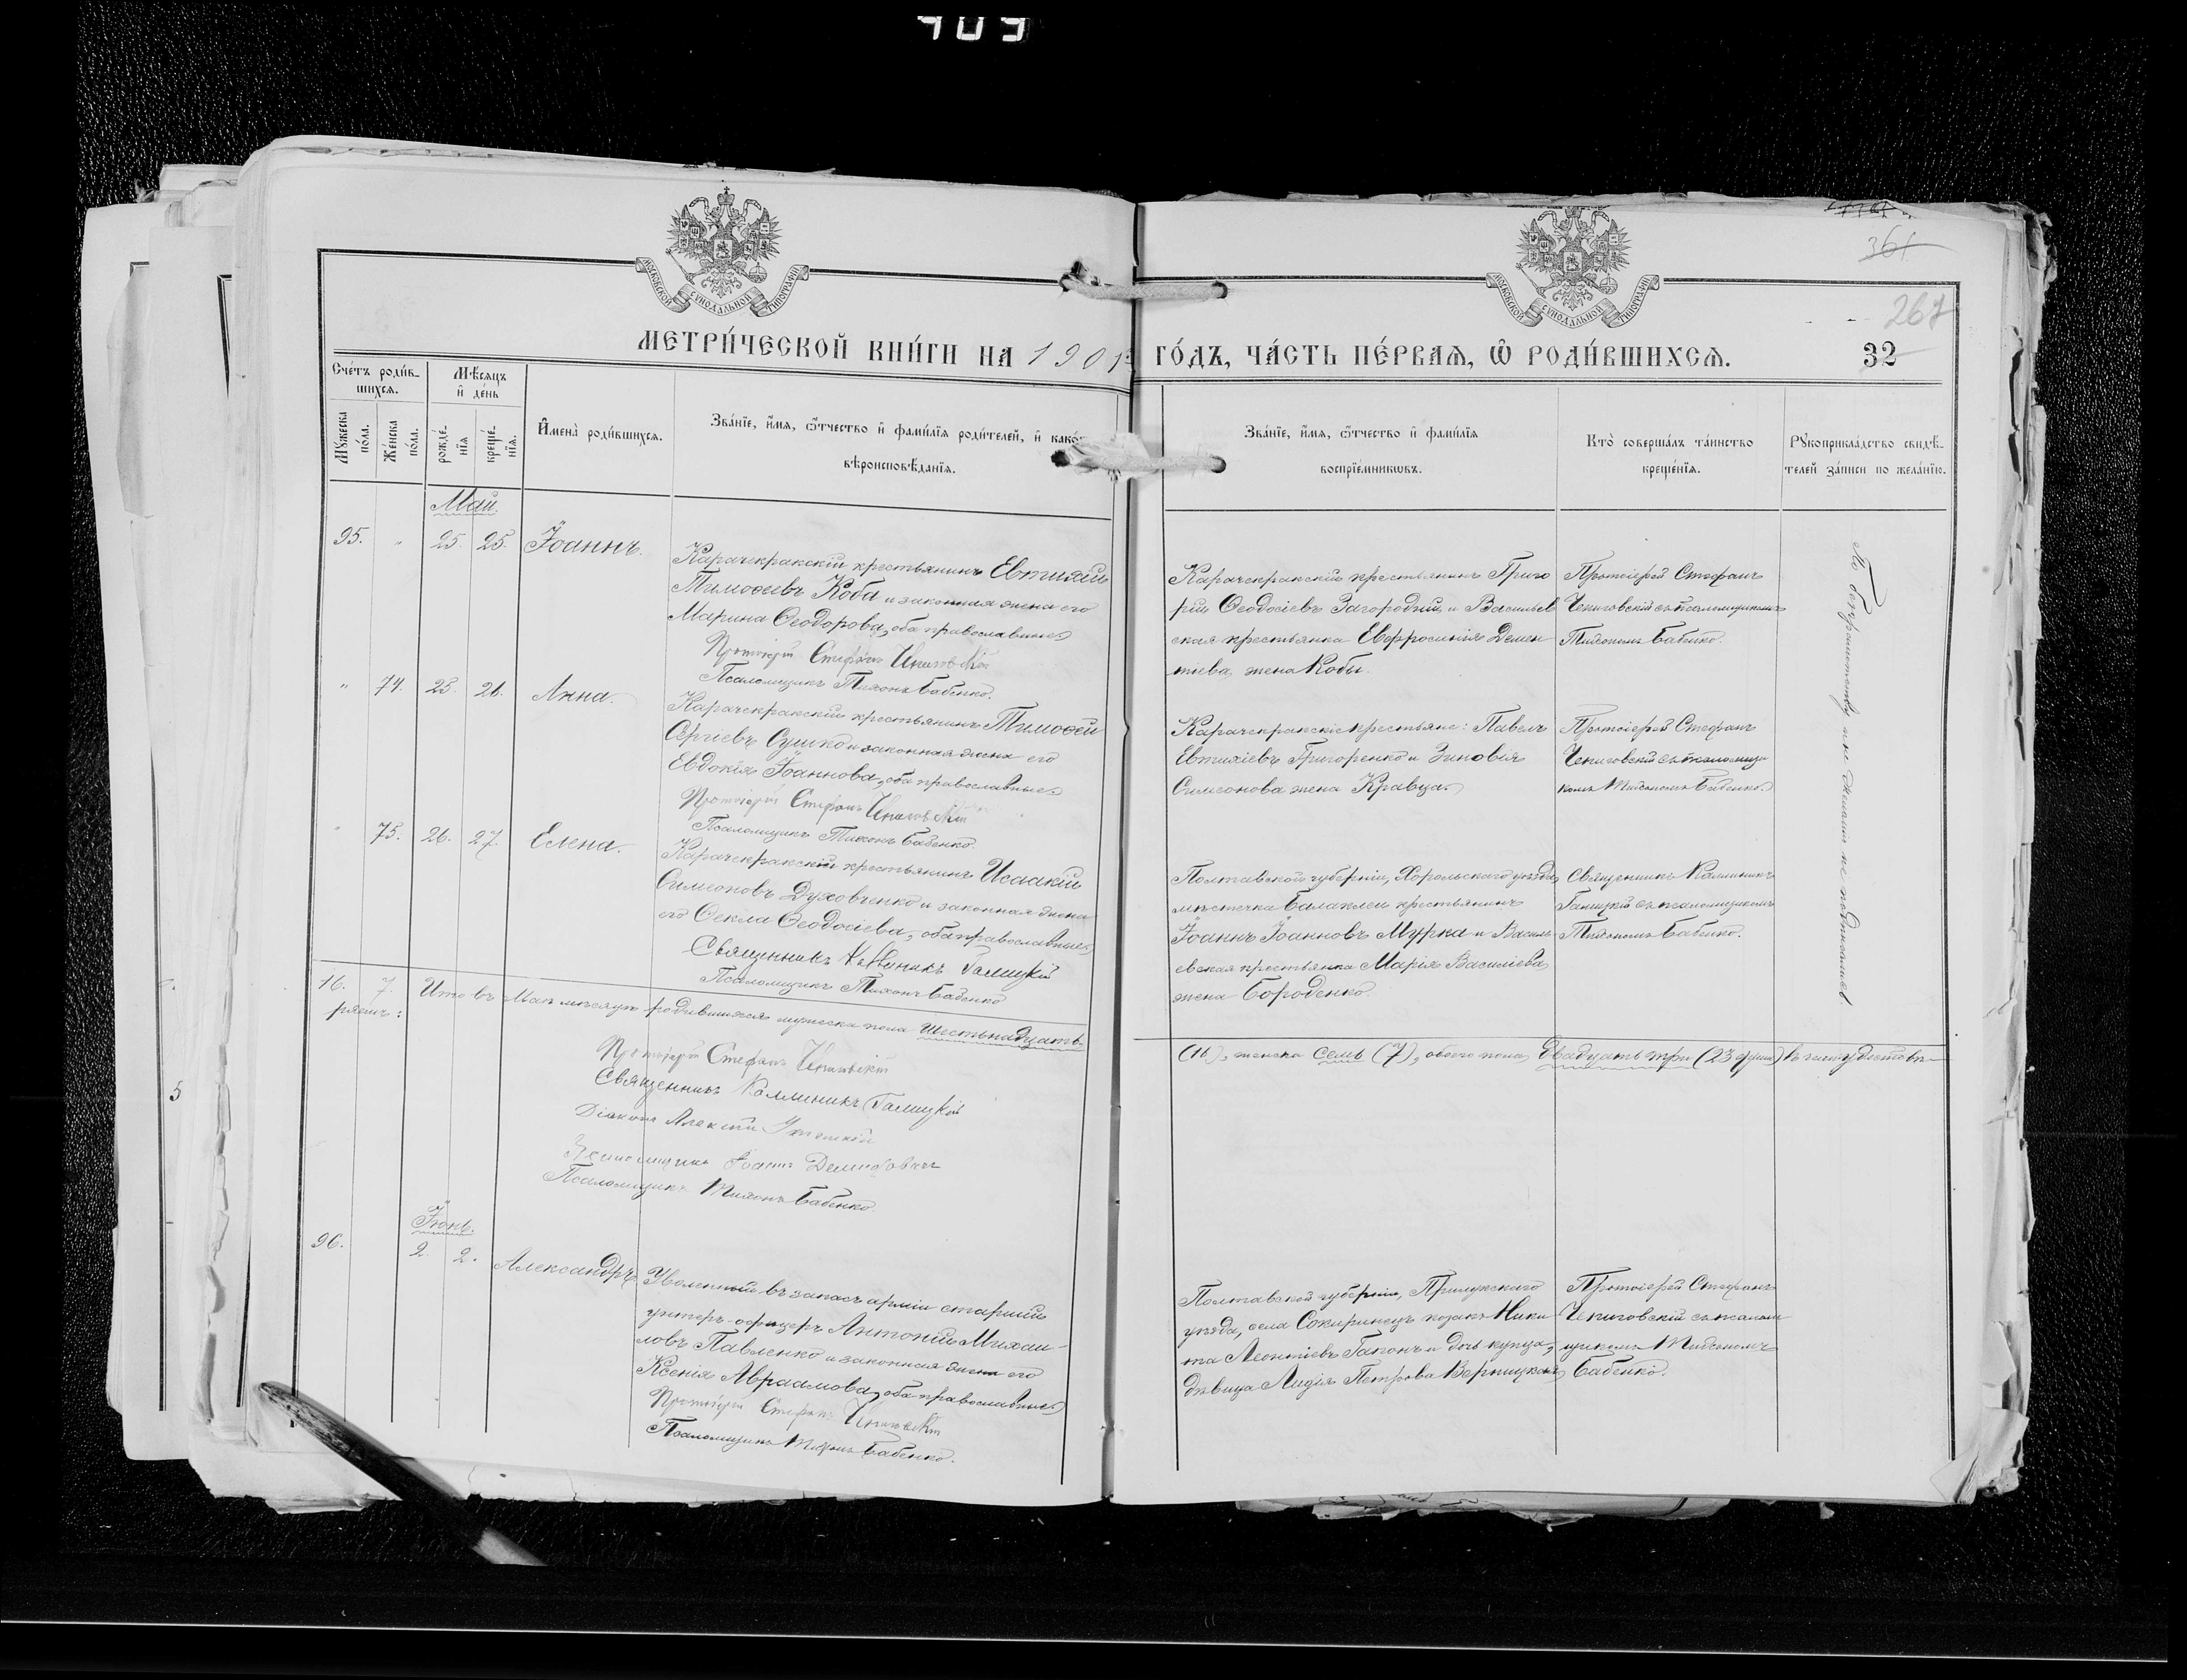 409
МОСКОВСКОЙ СѴНОДАЛЬНОЙ ТИПОГРАФІИ
МОСКОВСКОЙ СѴНОДАЛЬНОЙ ТИПОГРАФІИ
361
267
МЕТРИ́ЧЕСКОЙ КНИ́ГИ НА 1901 ГО́ДЪ, ЧА́СТЬ ПЕ́РВАѦ, Ѡ҆ РОДИ́ВШИХСѦ.
32
Сче́тъ роди́в-
шихсѧ.
Мꙋ́жеска
по́ла.
Же́нска
по́ла.
Мѣ́сѧцъ
и҆ де́нь
рожде́-
нїѧ
креще́-
нїѧ.
И҆мена̀ роди́вшихсѧ.
Зва́нїе, и҆́мѧ, ѻ҆́тчество и҆ фами́лїѧ роди́телей, и҆ како́гѡ
вѣроисповѣ́данїѧ.
Зва́нїе, и҆́мѧ, ѻ҆́тчество и҆ фами́лїѧ
воспрїе́мникѡвъ.
Кто̀ соверша́лъ та́инство
креще́нїѧ.
Рꙋкоприкла́дство свидѣ́-
телей за́писи по жела́нїю.
Май.
95. " 25. 25. Іоаннъ.
Карачекракскій крестьянинъ Евтихій
Тимоѳеевъ Коба и законная жена его
Марина Ѳеодорова, оба православные.
Протоіерей Стефанъ Чениговскій
Псаломщикъ Тихонъ Бабенко.
Карачекракскій крестьянинъ Григо
рій Ѳеодосіевъ Загородній, и Васильев
ская крестьянка Евфросинія Демен
тіева, жена Кобы.
Протоіерей Стефанъ
Чениговскій съ псаломщикомъ
Тихономъ Бабенко.
" 74. 25. 26. Анна.
Карачекракскій крестьянинъ Тимоѳей
Сергіевъ Сушко и законная жена его
Евдокія Іоаннова, оба православные.
Протоіерей Стефанъ Чениговскій
Псаломщикъ Тихонъ Бабенко.
Карачекракскіе крестьяне: Павелъ
Евтихіевъ Григоренко и Зиновія
Симеонова жена Кравца.
Протоіерей Стефанъ
Чениговскій съ псаломщи
комъ Тихономъ Бабенко.
" 75. 26. 27. Елена.
Карачекракскій крестьянинъ Исаакій
Симеоновъ Духовченко и законная жена
его Ѳекла Ѳеодосіева, оба православные.
Священникъ Каллиникъ Галицкій
Псаломщикъ Тихонъ Бабенко
Полтавской губерніи, Хорольскаго уѣзда,
мѣстечка Балаклеи крестьянинъ
Іоаннъ Іоанновъ Мурка и Василь
евская крестьянка Марія Василіева,
жена Бороденко.
Священникъ Каллиникъ
Галицкій съ псаломщикомъ
Тихономъ Бабенко.
По безграмотству и по желанію не подписались.
16. 7. Итого въ Маѣ мѣсяцѣ родившихся мужеска пола шестьнадцать
(16), женска семь (7), обоего пола двадцать три (23 души) въ чемъ удостовѣ-
ряемъ:
Протоіерей Стефанъ Чениговскій
Священникъ Каллиникъ Галицкій
Діаконъ Алексій
Псаломщикъ
Псаломщикъ Тихонъ Бабенко.
Іюнь.
96. 2. 2. Александръ
Уволенный въ запасъ арміи старшій
унтеръ-офицеръ Антоній Михаи-
ловъ Павленко и законная жена его
Ксенія Авраамова, оба православные.
Протоіерей Стефанъ Чениговскій
Псаломщикъ Тихонъ Бабенко.
Полтавской губерніи, Прилукскаго
уѣзда, села Сокиринецъ козакъ Ники
та Леонтіевъ Гапонъ и дочь купца,
дѣвица Лидія Петрова Верницкая
Протоіерей Стефанъ
Чениговскій съ псалом
щикомъ Тихономъ
Бабенко.
5